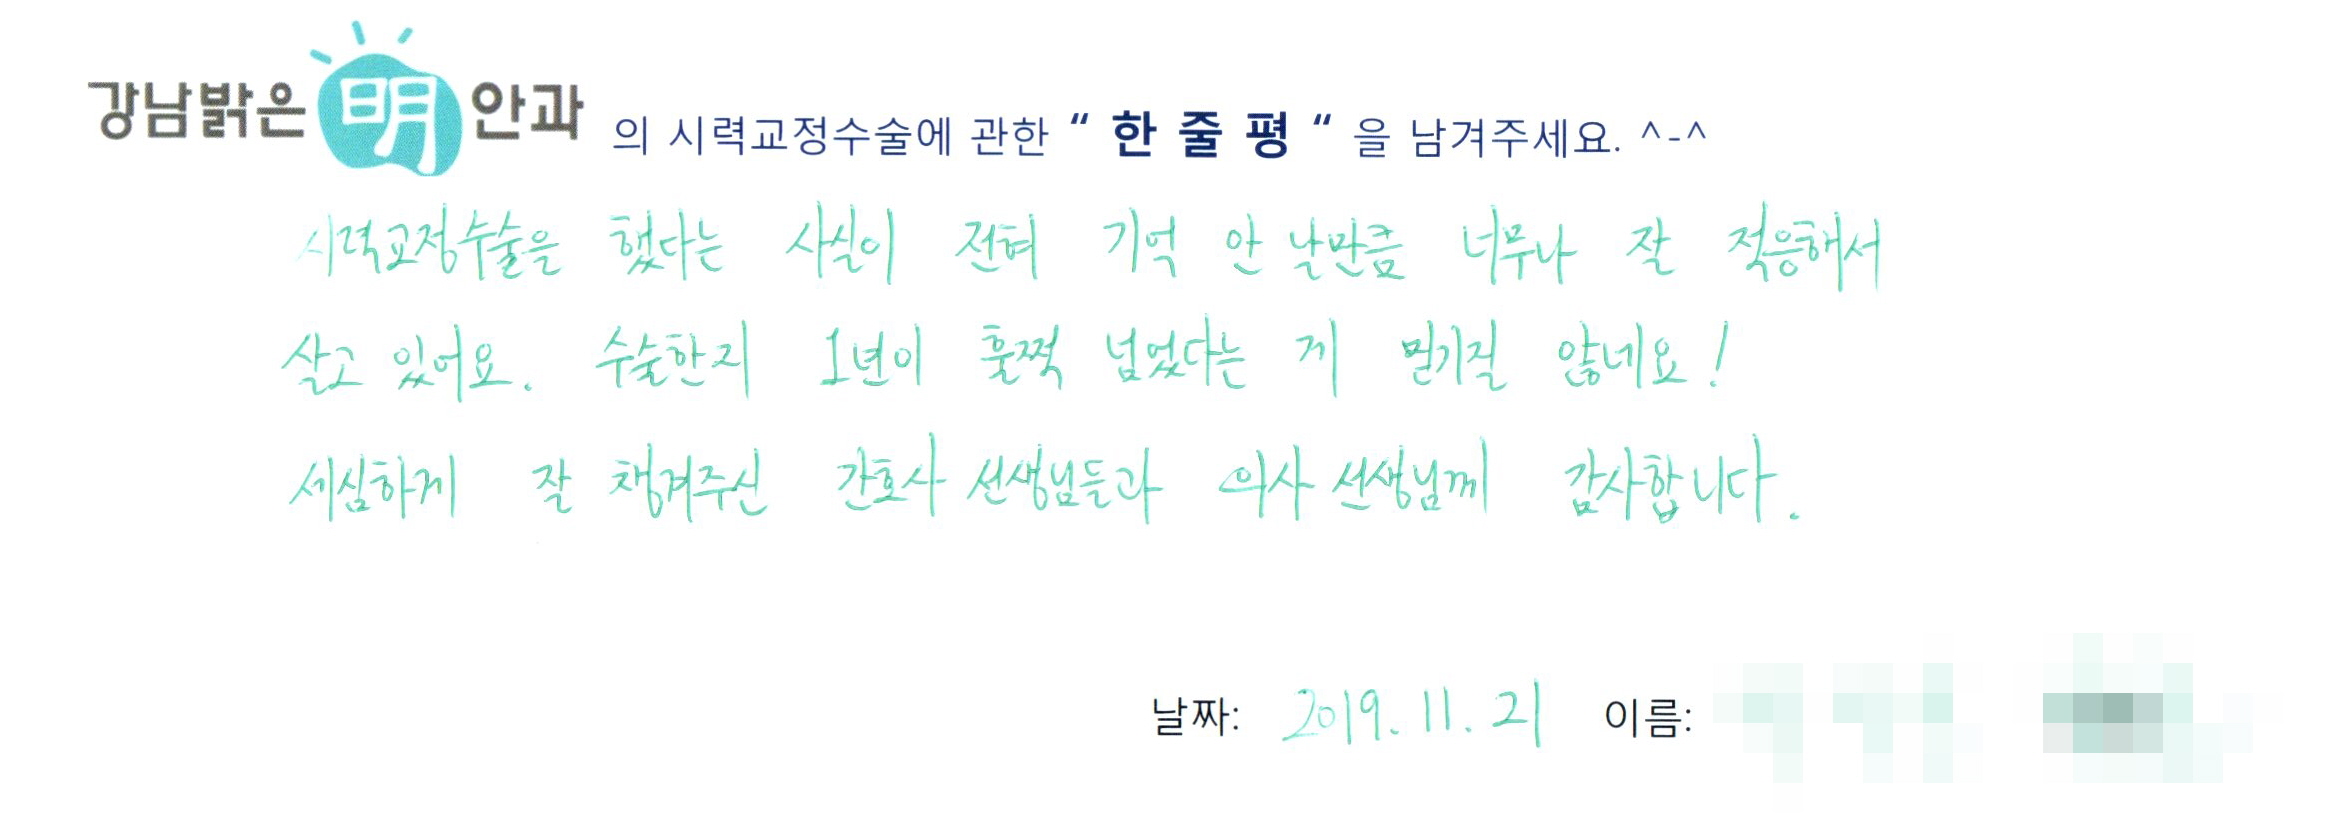 강남밝은明안과의 시력교정수술에 관한 “한줄평“을 남겨주세요. ^-^
시력교정수술을 했다는 사실이 전혀 기억 안 날만큼 너무나 잘 적응해서
살고 있어요. 수술한지 1년이 훌쩍 넘었다는 게 믿기질 않네요!
세심하게 잘 챙겨주신 간호사 선생님들과 의사 선생님께 감사합니다.
날짜: 2019. 11. 21 이름: